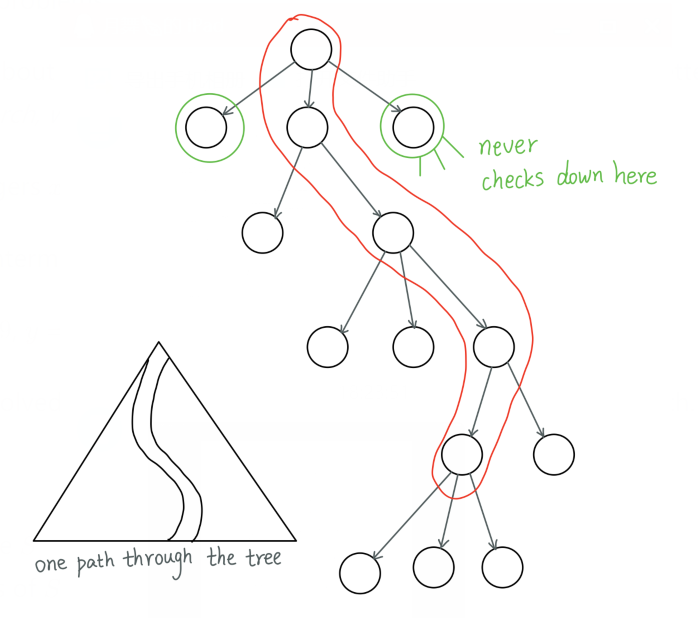 never
checks down here
one path through the tree